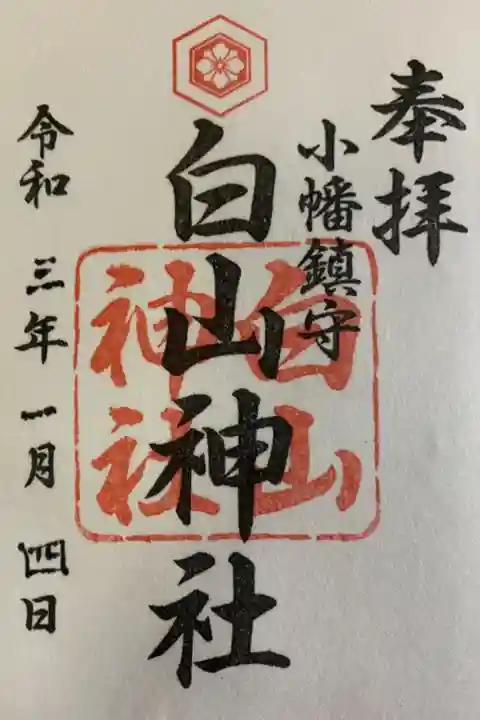 奉拝
小幡鎮守
白山神社
白山
神社
令和 三年 一月 四日